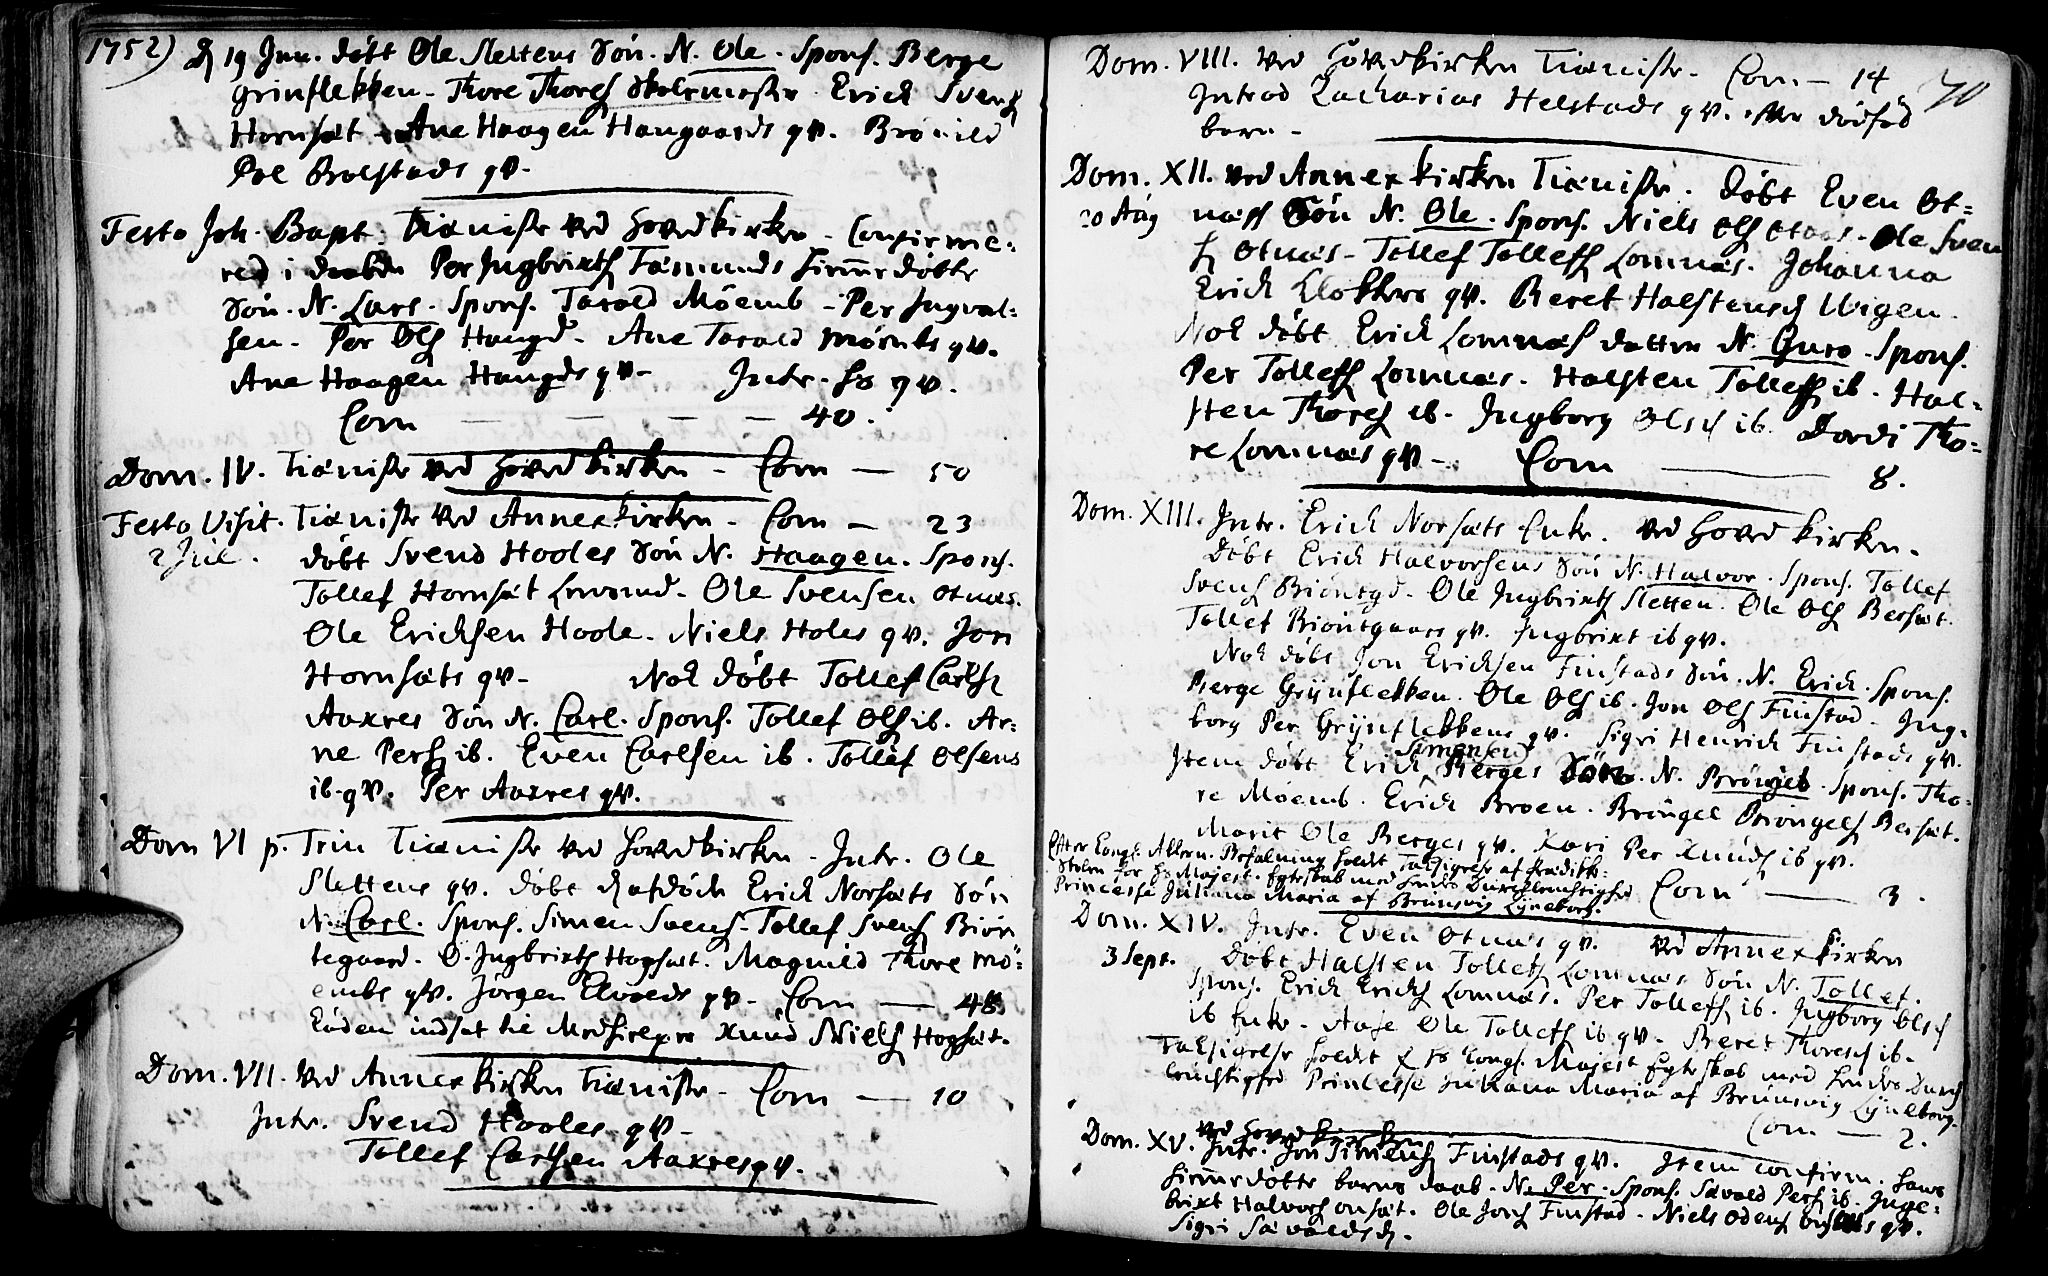 1752) d 19 Jun. døbt Ole Slettens Søn. N. Ole. Spons. Berge
grinflekken - Thore Thores Skolemester. Erick Svens
Hornsæt - Ane Haagen Haugaards qv. Brönild
Poe Brolstads qv.
Festo Joh. Bapt. Tieniste ved Hovedkirken - Confirme:
red i daaben Per Ingbrixts Fæmunds hiemmedøbte
Søn. N. Lars. Spons. Tarald Möemb - Per Ingval:
sen - Per Ols Haugd - Ane Tarald Möembs qv.
Ane Haagen Haugds qv - Intr. ho qv.
Com - - - - 40.
Dom. IV. Tieniste ved Hovedkirken - Com - 50
Festo Visit. Tieniste ved Annexkirken - Com - 23
2 Jul. døbt Svend Hooles Søn N. Haagen. Spons.
Tollef Hornsæt - Ole Svensen Otnæs.
Ole Ericksen Hoole - Niels Holes qv. Jon
Hornsæts qv - Nok døbt Tollef Carls
Aaxres Søn N. Carl. Spons. Tollef Ols ib. Ar:
ne Pers ib. Even Carlsen ib. Tollef Olsens
ib. qv. Per Aaxres qv.
Dom VI p. Trin Tieniste ved Hovedkirken - Intr. Ole
Slettens qv. døbt Erick Norsæts Søn
N. Carl. Spons. Simen Svens - Tollef Svens Biön
tegaard. O. Ingbrixts Hogsæt. Magnild Thore Mö:
embs qv. Jörgen qv - Com - 48.
Eodem indsat til Medhielper Knud Niels Hogsæt.
Dom. VII. ved Annexkirken Tieniste - Com - 10
Intr. Svend Hooles qv -
Tollef Carlsen Aaxres qv.
70
Dom. VIII. ved Hovedkirken Tieniste - Com - 14
Introd Zacharias Helstads qv. efter dödföd
barn -
Dom. XII. ved Annexkirken Tieniste. Døbt Even Ot:
20 Aug næss Søn N. Ole. Spons. Niels Ols Otnæs - Ole Sven
s Otnæs - Tollef Tollefs Lomnæs. Johanna
Erick Klokkers qv. Beret Halstensd Uvigen.
Nok døbt Erick Lomnæs datter N. Guro. Spons.
Per Tollefs Lomnæs. Halsten Tollefs ib. Hal:
sten Thores ib. Ingborg Olsd ib. Dordi Tho:
re Lomnæs qv - Com - 8.
Dom. XIII. Intr. Erick Norsæts Enke. ved Hovedkirken.
Døbt Erick Halvorsens Søn N. Halvor. Spons. Tollef
Svens Biöntgd - Ole Ingbrixts Sletten. Ole Ols Bersæt.
Tollef Biöntgaars qv. Ingbrixt ib qv.
Nok døbt Jon Ericksen Finstads Søn. N. Erick. Spons.
Berge Grijnflekken. Ole Ols ib. Jon Ols Finstad - Ing:
borg Per Grijnflekkens qv. Sigri Henrick Finstads qv.
Item døbt Erick Simensen Berges Søn. N. Bröngel. Spons. Tho:
re Moemb. Erick Broen. Bröngel Bröngels Bersæt.
Marit Ole Berges qv. Kari Per Knuds ib qv.
Efter Kongl. Allern. Befalning holdt Taksigelse af Prædike:
Stolen for Hs Majest. Egteskab med hendes Durchleuchtighed
Princesse Juliana Maria af Brunsvig Lyneborg. Com - 3.
Dom. XIV. Intr. Even Otnæs qv. ved Annexkirken
3 Sept. Døbt Halsten Tollefs Lomnæs Søn N. Tollef.
Spons. Erick Ericks Lomnæs. Per Tollefs ib. Ingborg Olsd
ib Enke - Aase Ole Tollefs ib qv. Beret Thoresd ib.
Taksigelse holdt for hs Kongl. Majest Egteskab med hendes Durch
leuchtighed Princesse Juliana Maria af Brunsvig Lyneborg.
Com - 2.
ved Hovedkirken
Dom. XV. Intr. Jon Simens Finstads qv. Item confirm. hans
hiemmedøbte barns daab - N. Per. Spons. Sævald Pers ib. Inge:
brixt Halvors onsæt. Ole Jons Finstad - Niels Odens qv.
Sigri Sævaldsd.